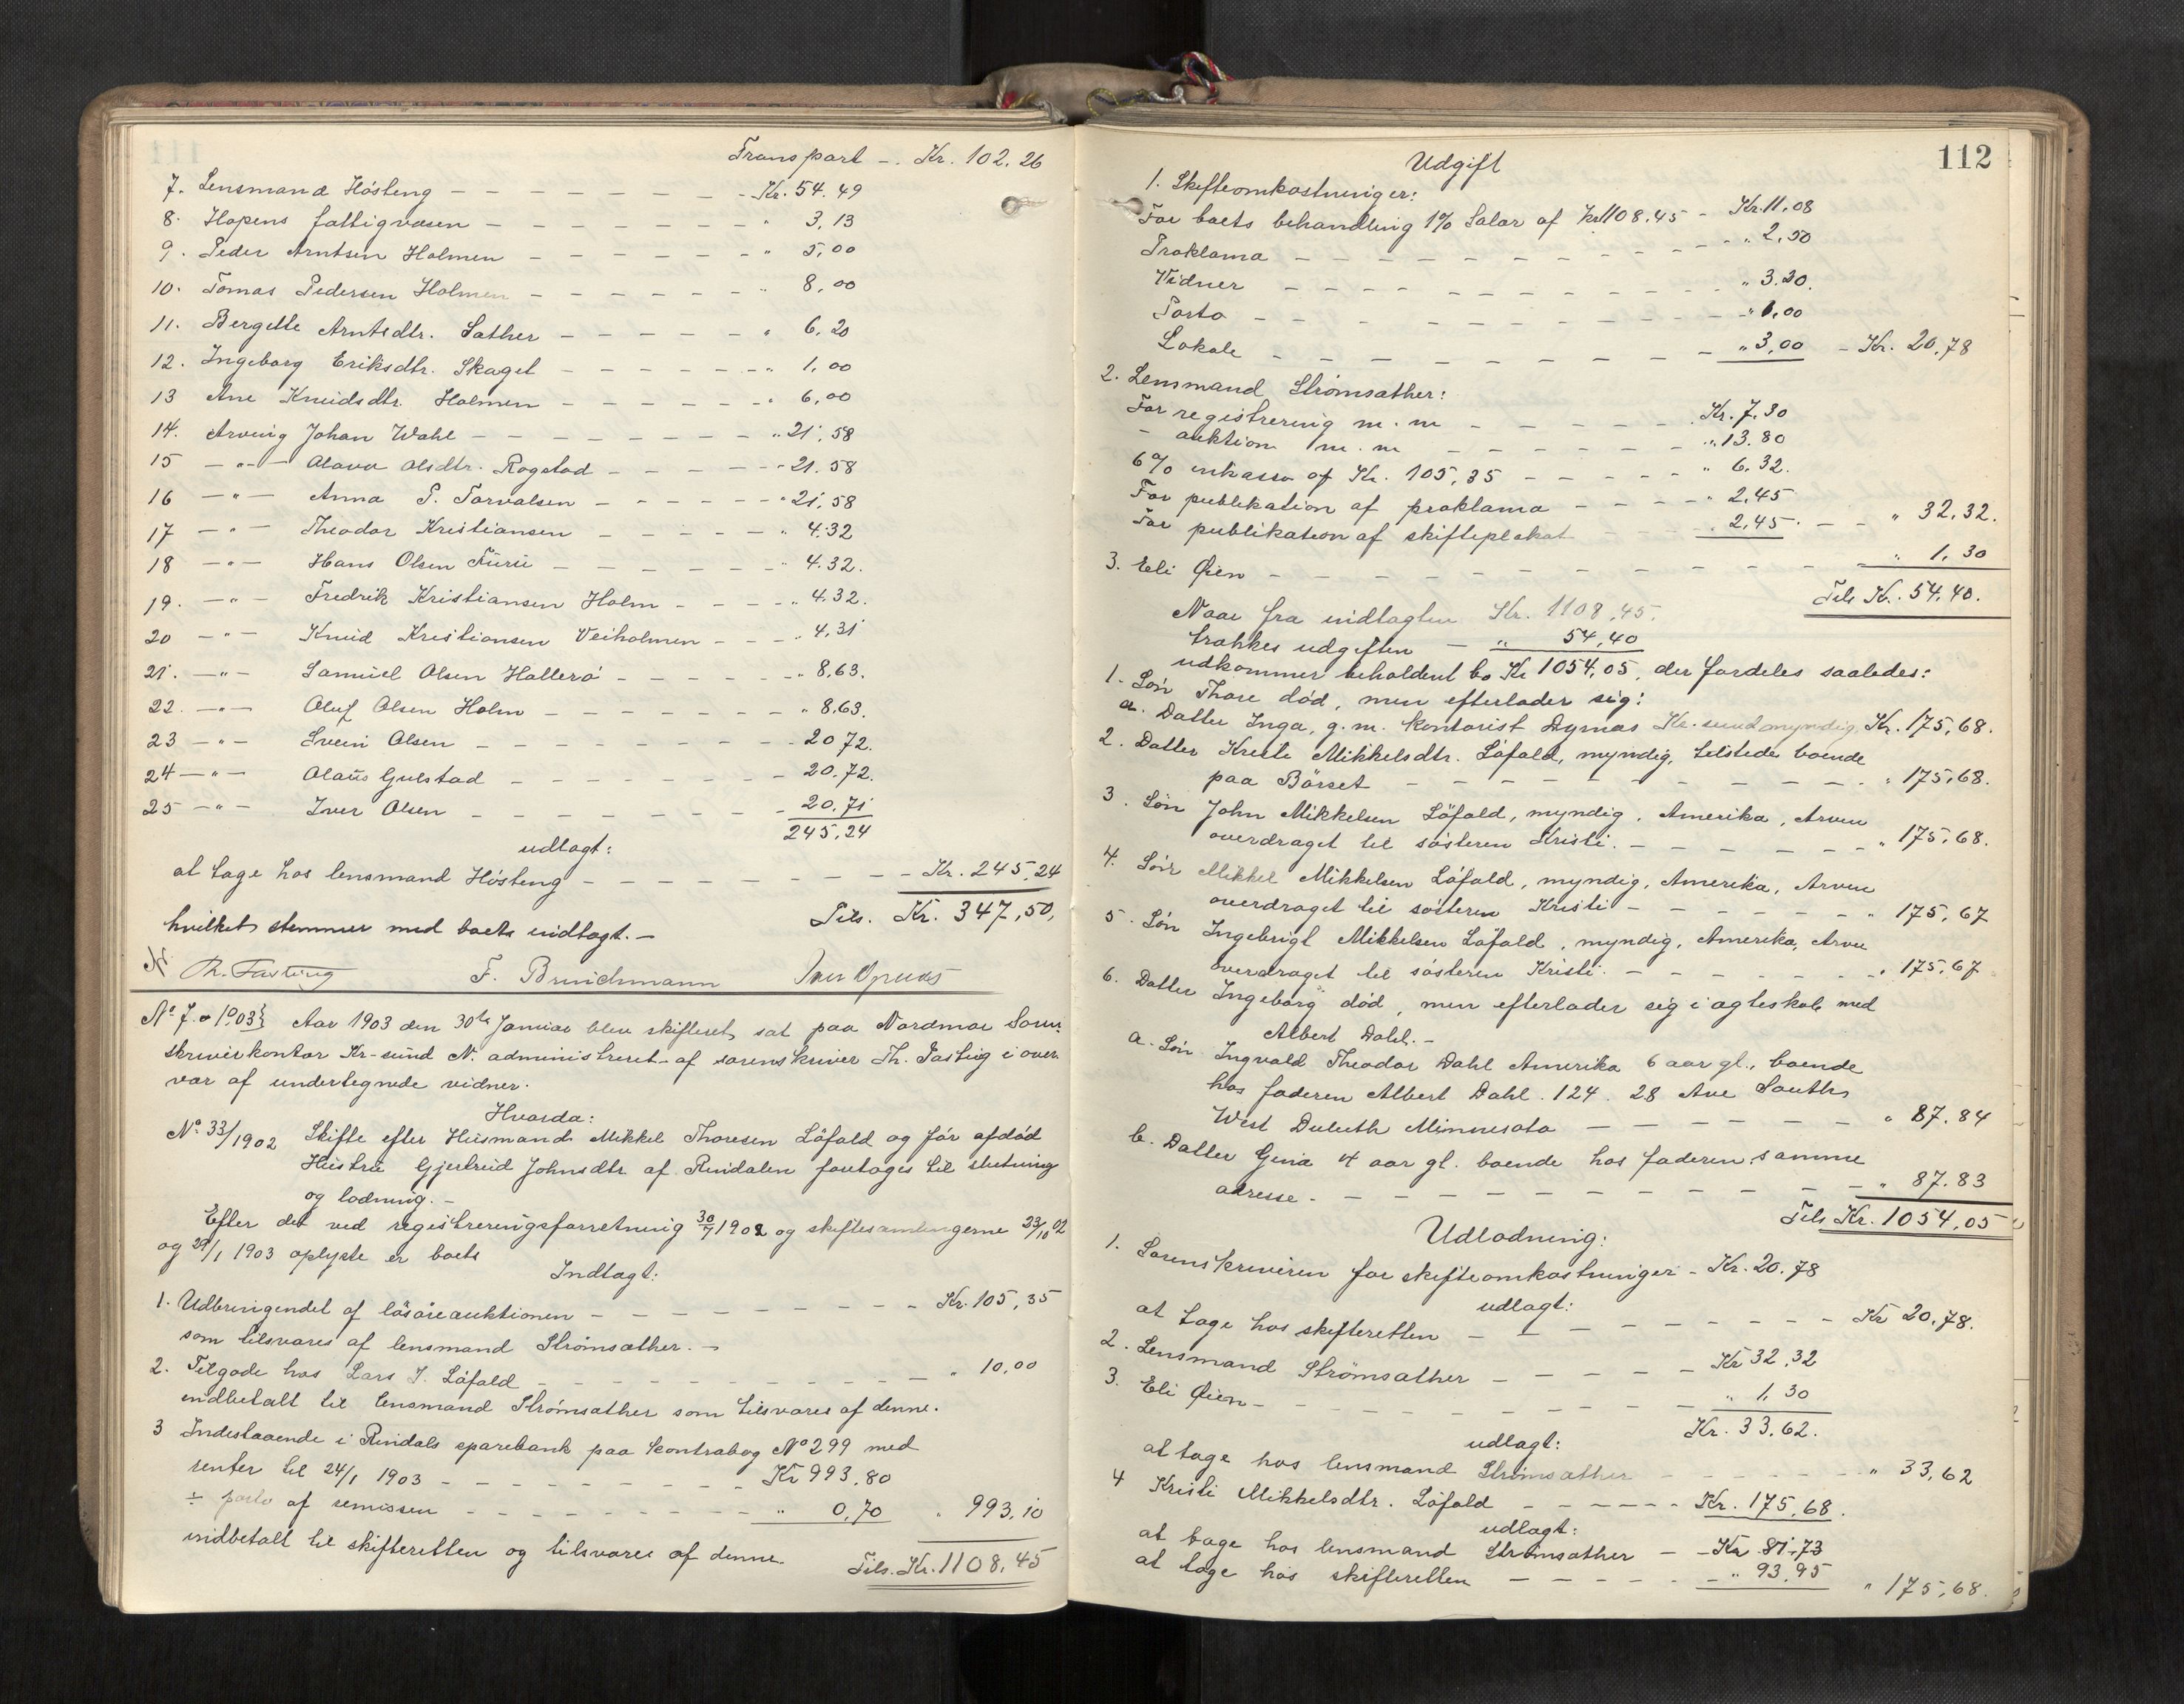 Transport -. Kr. 102.26
7. Lensmand Hösteng - - - - - - - Kr. 54.49
8. Hopens fattigvæsen - - - - - - " 3,13
9. Peder Arntsen Holmen - - - - - " 5,00
10. Tomas Pedersen Holmen - - - - - " 8,00
11. Bergitte Arntsdtr. Sæther - - - - - " 6,20
12. Ingeborg Eriksdtr. Skaget - - - - - " 1,00
13 Ane Knudsdtr. Holmen - - - - - " 6,00
14. Arving Johan Wahl - - - - - - - " 21,58
15 -"- Olava Olsdtr. Rogstad - - - - " 21.58
16 -"- Anna P. Torvalsen - - - - - " 21,58
17 -"- Theodor Kristiansen - - - - - " 4.32
18 -"- Hans Olsen Furu - - - - - - " 4.32.
19. -"- Fredrik Kristiansen Holm - - - - " 4.32.
20 -"- Knud Kristiansen Veiholmen - - - " 4,31
21. -"- Samuel Olsen Hallerö - - - - - " 8,63.
22. -"- Oluf Olsen Holm - - - - - - - " 8,63.
23 -"- Svein Olsen - - - - - - - - - 20 72.
24 -"- Olaus Gulstad - - - - - - - - 20.72.
25 -"- Iver Olsen - - - - - - - - - 20.71
245,24
udlagt:
at tage hos lensmand Hösteng - - - - - - - - Kr. 245,24
hvilket stemmer med boets indtægt. - Tils. Kr. 347,50,
Th. Fasting F. Brinchmann
No 7 - 1903} Aar 1903 den 30te Januar blev skifteret sat paa Nordmør Soren-
skriverkontor Kr-sund N. administreret af sorenskriver Th. Fasting i over-
vær af undertegnede vidner.
Hvorda:
No 33/1902 Skifte efter Husmand Mikkel Thoresen Löfald og før afdød
Hustru Gjertrud Johnsdtr. af Rindalen foretoges til slutning
og lodning. -
Efter det ved registreringsforretning 30/7 1902 og skiftesamlingerne 23/10 02
og 29/1 1903 oplyste er boets
Indtægt:
1. Udbringendet af lösöreauktionen - - - - - - - - - Kr. 105,35
som tilsvares af lensmand Strömsæther. -
2. Tilgode hos Lars J. Löfald - - - - - - - - - - " 10,00
indbetalt til lensmand Strömsæther som tilsvares af denne.
3 Indestaaende i Rindals sparebank paa kontrabog No 299 med
renter til 24/1 1903 - - - - - - - - Kr 993,80
÷ porto af remissen - - - - - - - - " 0,70 " 993,10
indbetalt til skifteretten og tilsvares af denne.
Tils. Kr. 1108,45
112
Udgift
1. Skifteomkostninger:
For boets behandling 1% Salær af Kr 1108.45 - Kr. 11,08
Proklama - - - - - - - - - - - " 2,50
Vidner - - - - - - - - - - - " 3.20.
Porto - - - - - - - - - - - " 1,00
Lokale - - - - - - - - - - " 3,00 - Kr. 20,78
2. Lensmand Strömsæther:
For registrering m. m - - - - - . Kr. 7.30
- auktion m. m - - - - - - - " 13.80
6% inkasso af Kr. 105,35 - - - - - " 6.32.
For publikation af proklama - - - - " 2,45
For publikation af skifteplakat - - . 2,45. - - " 32,32.
3. Eli Øien - - - - - - - - - - - - - - " 1,30
Tils Kr. 54,40.
Naar fra indtægten Kr. 1108,45.
trækkes udgiften - " 54,40
udkommer beholdent bo Kr 1054,05, der fordeles saaledes:
1. Søn Thore død, men efterlader sig:
a. Datter Inga, g. m. Kontorist Dyrnæs Kr.-sund myndig, Kr. 175,68.
2. Datter Kristi Mikkelsdtr. Löfald, myndig, tilstede boende
paa Börset - - - - - - - - - - - - " 175,68.
3. Søn John Mikkelsen Löfald, myndig, Amerika, Arven
overdraget til søsteren Kristi. - - - - - - - " 175,68.
4. Søn Mikkel Mikkelsen Löfald, myndig, Amerika, Arven
overdraget til søsteren Kristi - - - - - - - " 175,67
5. Søn Ingebrigt Mikkelsen Löfald, myndig, Amerika, Arven
overdraget til søsteren Kristi. - - - - - - - " 175,67
6. Datter Ingeborg død, men efterlader sig i ægteskab med
Albert Dahl. -
a. Søn Ingvald Theodor Dahl Amerika 6 aar gl., boende
hos faderen Albert Dahl. 124. 28 Ave South
West Duluth Minnesota - - - - - - " 87.84
b. Datter Gina 4 aar gl. boende hos faderen samme
adresse. - - - - - - - - - - - - " 87.83
Tils Kr. 1054,05
Udlodning:
1. Sorenskriveren for skifteomkostninger - Kr. 20.78
udlagt:
at tage hos skifteretten - - - - - - - - - Kr 20,78.
2. Lensmand Strömsæther - - - - - Kr 32,32
3. Eli Øien - - - - - - - - - - " 1,30
Kr. 33,62.
udlagt:
at tage hos lensmand Strömsæther - - - - - - " 33,62
4 Kristi Mikkelsdtr. Löfald - - - - - - Kr. 175,68.
udlagt:
at tage hos lensmand Strömsæther - - Kr 81.73
at tage hos skifteretten - - - - - - " 93,95 " 175,68.